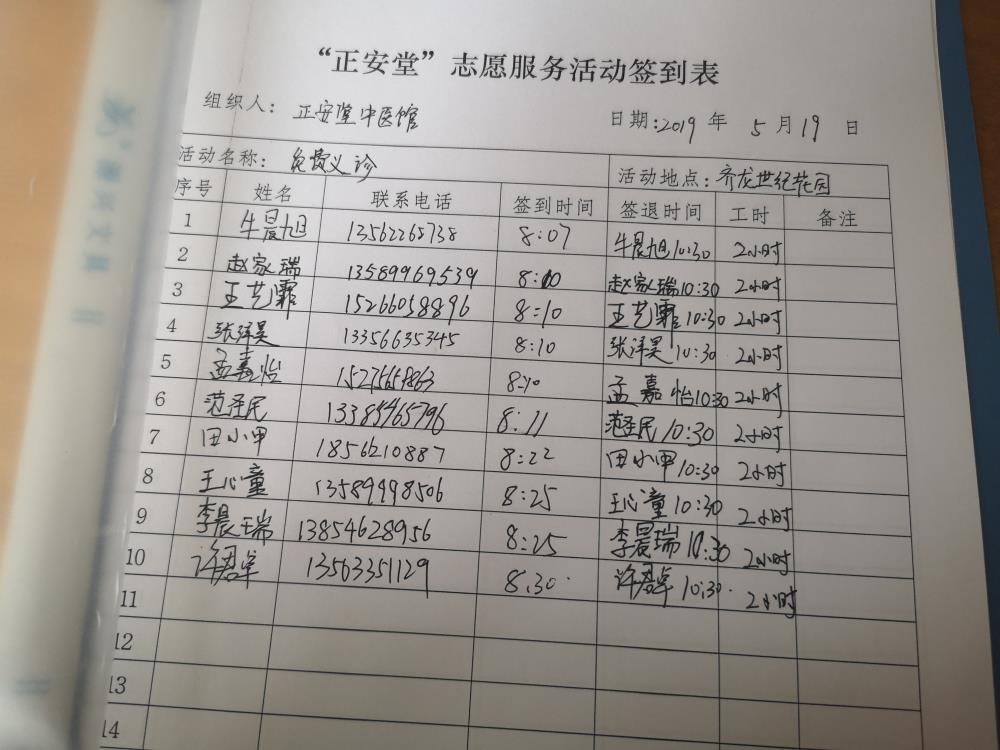 “正安堂”志愿服务活动签到表
组织人：正安堂中医馆 日期：2019 年 5 月 19 日
活动名称：免费义诊 活动地点：齐龙世纪花园
序号 姓名 联系电话 签到时间 签退时间 工时 备注
1 牛晨旭 13562268738 8:07 牛晨旭 10:30 2小时
2 赵家瑞 13589969539 8:10 赵家瑞 10:30 2小时
3 王艺霏 15266058896 8:10 王艺霏 10:30 2小时
4 张洋昊 13356635345 8:10 张洋昊 10:30 2小时
5 孟嘉怡 8:10 孟嘉怡 10:30 2小时
6 范圣民 13385465796 8:11 范圣民 10:30 2小时
7 田小甲 1856210887 8:22 田小甲 10:30 2小时
8 王心童 13589998506 8:25 王心童 10:30 2小时
9 李晨瑞 13854628956 8:25 李晨瑞 10:30 2小时
10 许君卓 13563351129 8:30 许君卓 10:30 2小时
11
12
13
14